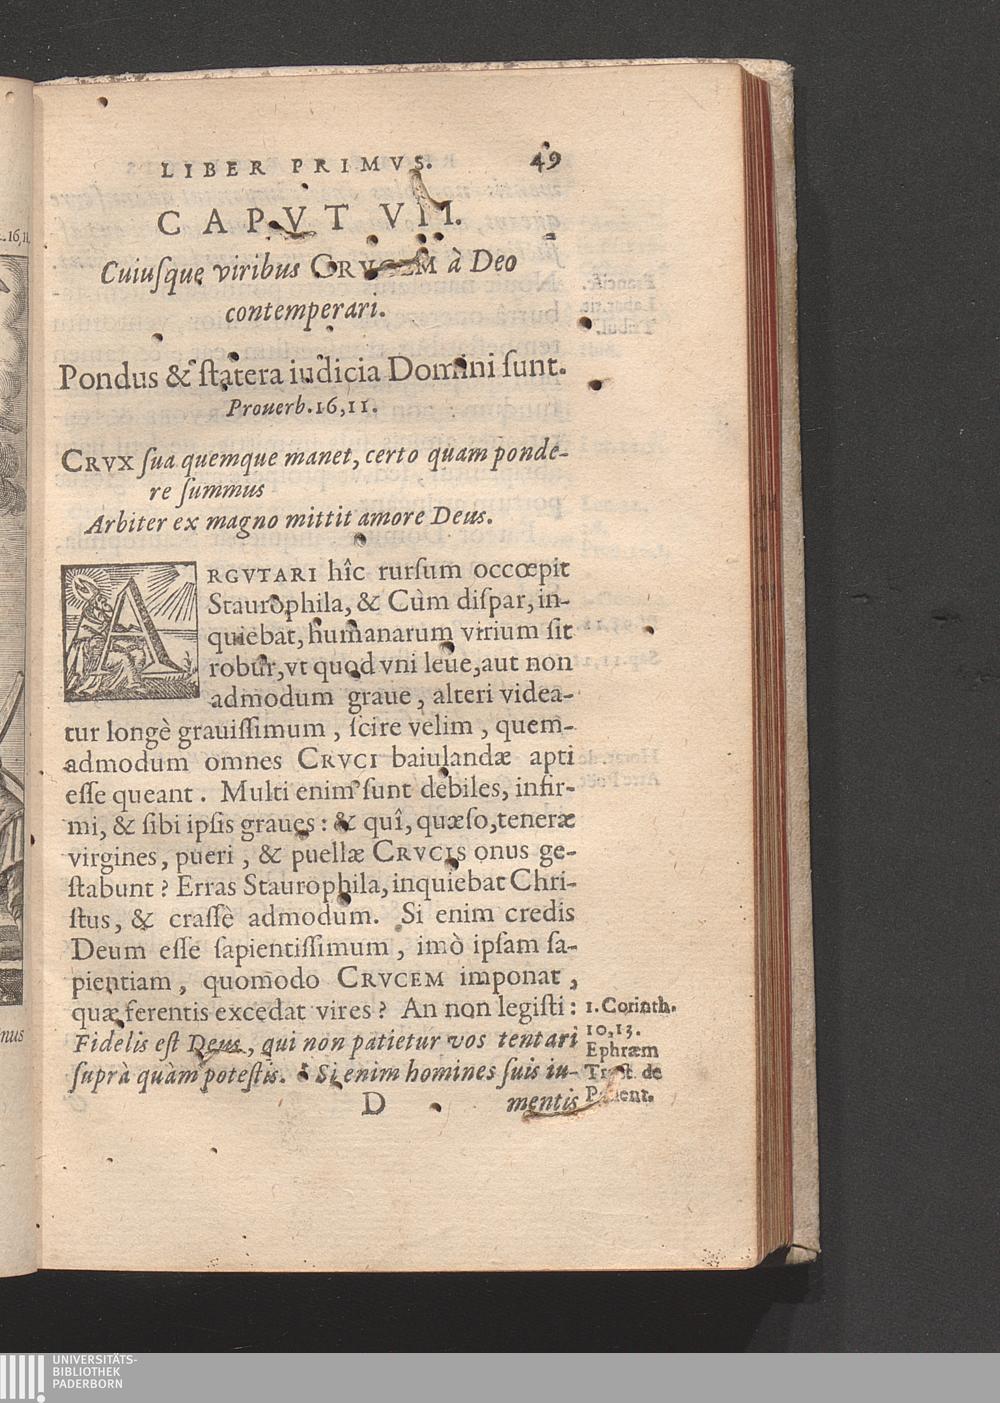 LIBER PRIMVS. 49
CAPVT VII.
Cuiuſque viribus CRVCEM à Deo
contemperari.
Pondus & ſtatera iudicia Domini ſunt.
Prouerb. 16, 11.
CRVX ſua quemque manet, certo quam ponde-
re ſummus
Arbiter ex magno mittit amore Deus.
ARGVTARI hîc rurſum occœpit
Staurophila, & Cùm diſpar, in-
quiebat, humanarum virium ſit
robur, vt quod vni leue, aut non
admodum graue, alteri videa-
tur longè grauiſſimum, ſcire velim, quem-
admodum omnes CRVCI baiulandæ apti
eſſe queant. Multi enim ſunt debiles, infir-
mi, & ſibi ipſis graues: & quî, quæſo, teneræ
virgines, pueri, & puellæ CRVCIS onus ge-
ſtabunt? Erras Staurophila, inquiebat Chri-
ſtus, & craſſè admodum. Si enim credis
Deum eſſe ſapientiſſimum, imò ipſam ſa-
pientiam, quomodo CRVCEM imponat,
quæ ferentis excedat vires? An non legiſti:
Fidelis eſt Deus, qui non patietur vos tentari
ſuprà quàm poteſtis. Si enim homines ſuis iu-
D mentis
1. Corinth.
10, 13.
Ephræm
Tract. de
Patient.
.. 16, 11.
nus
UNIVERSITÄTS-
BIBLIOTHEK
PADERBORN